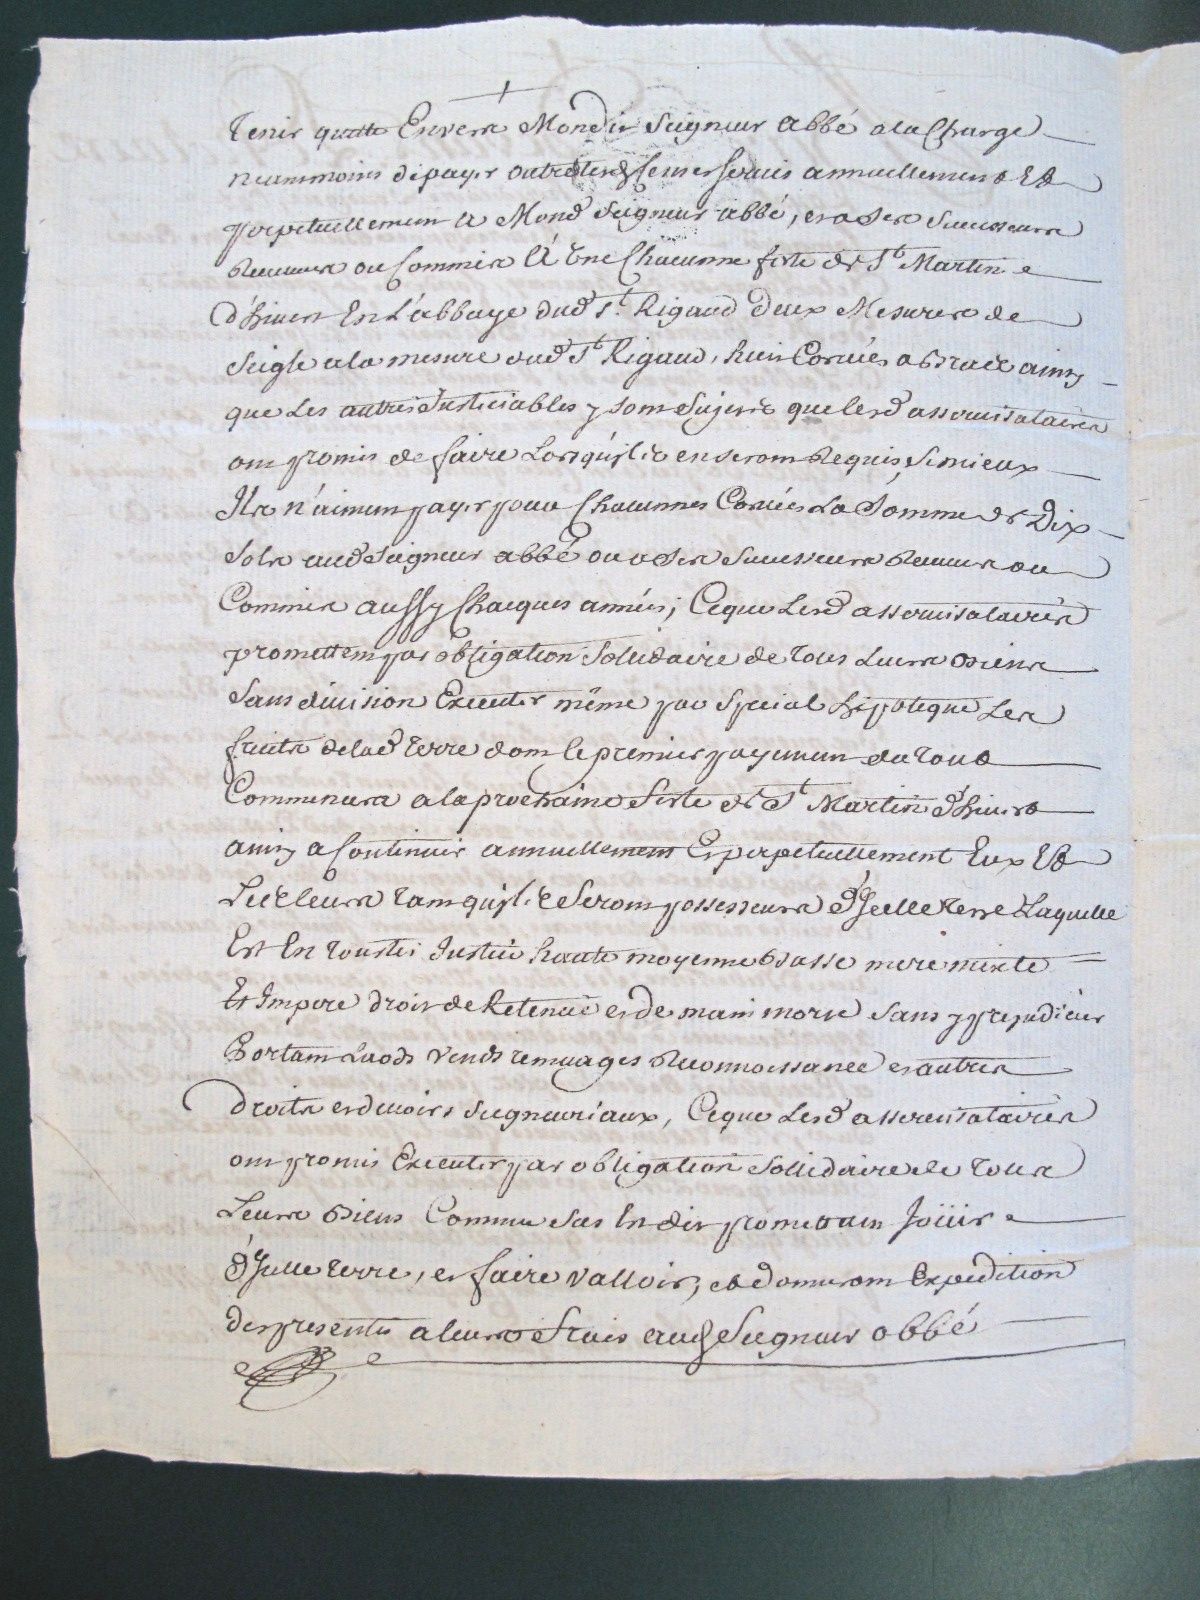 tenir quitte Envers Mondit Seigneur abbé a la Charge
neanmoins de payer outre lesd. Cens et servis annuellement Et
perpetuellement a Mond Seigneur abbé, et a ses Successeurs
Receveurs ou Commis A Une Chacunne feste de St Martin
d'hivert En L'abbaye dud St. Rigaud Deux Mesures de
Seigle a la mesure dud St Rigaud, huit Corvées a bras ainsy
que Les autres Justiciables y sont Sujets que lesd assencisataires
ont promis de faire Lorsqu'ils en seront Requis, Si mieux
Ils n'aiment payer pour Chacunnes Corvées La Somme de Dix
Sols aud Seigneur abbé ou a Ses Successeurs Receveurs ou
Commis aussy Chacques années; Ceque Lesd assencisataires
promettent par obligation Sollidaire de tous Leurs biens
Sans division Executer même par Special hipoteque Les
fruits delad terre dont le premier payement du tout
Commencera a la prochaine feste de St Martin d'hivert
ainsy a Continuer annuellement Et perpetuellement Eux Et
Les leurs tant qu'ils Seront possesseurs d'Jcelle terre Laquelle
Est En touttes Justice haute moyenne basse mere mixte
Et Impere droit de Retenue et de main morte sans prejudicier
Portant Laods vends remuages Reconnoissance et autres
droits et devoirs Seigneuriaux, Ceque Lesd assencisataires
ont promis Executer par obligation Sollidaire de tous
Leurs biens Comme Sus En dit promettant Joüir
d'Jcelle terre, et faire valloir, et donneront Expedition
des presentes a leurs frais aud Seigneur abbé